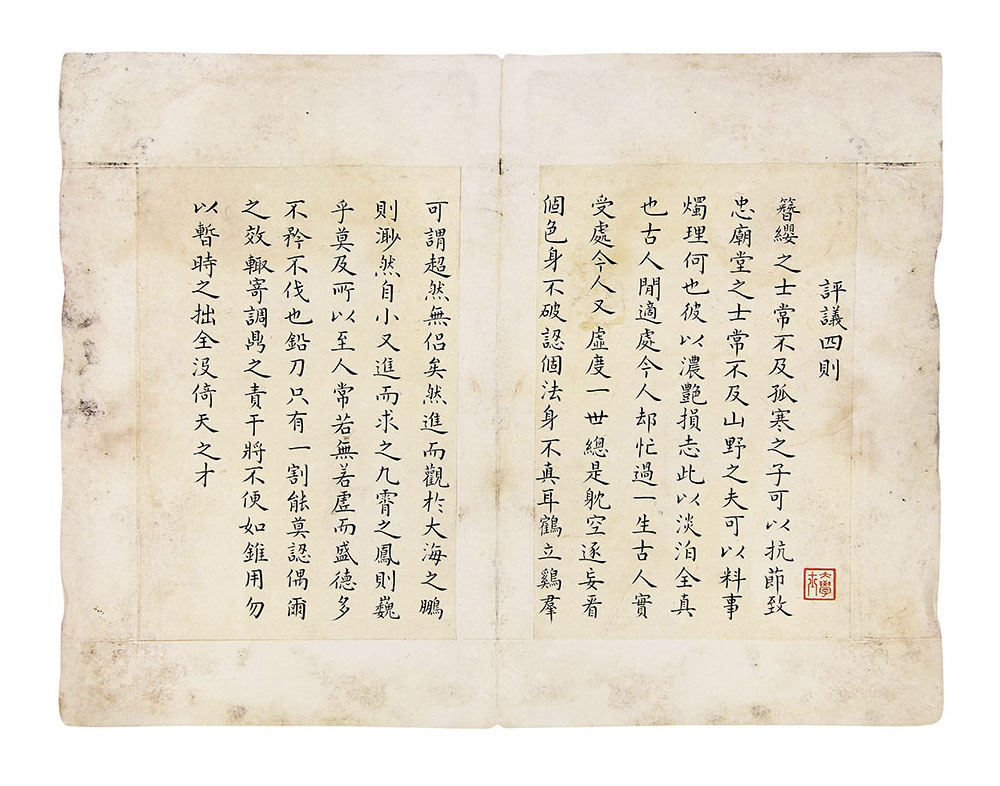 評議四則
簪纓之士常不及孤寒之子可以抗節致
忠廟堂之士常不及山野之夫可以料事
燭理何也彼以濃艷損志此以淡泊全真
也古人閒適處今人却忙過一生古人實
受處今人又虛度一世總是躭空逐妄看
個色身不破認個法身不真耳鶴立鷄羣
可謂超然無侶矣然進而觀於大海之鵬
則渺然自小又進而求之九霄之鳳則巍
乎莫及所以至人常若無若虛而盛德多
不矜不伐也鉛刀只有一割能莫認偶爾
之效輙寄調鼎之責干將不便如錐用勿
以暫時之拙全没倚天之才